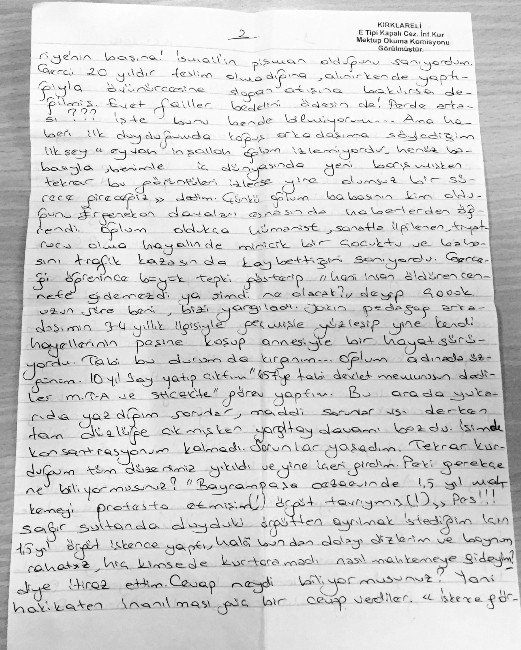 2
KIRKLARELİ
E Tipi Kapalı Cez. İnf. Kur
Mektup Okuma Komisyonu
Görülmüştür.
riye'nin basına! İsmail'in pişman olduğunu sanıyordum.
Gerçi 20 yıldır teslim olmadığına, alınırkende yaptı-
ğıyla övünürcesine slogan atışına bakılırsa de-
ğilmiş. Evet failler bedelini ödesin de! Perde arka-
sı??? İşte bunu bende bilmiyorum... Ama ha-
beri ilk duyduğumda koğuş arkadaşıma söylediğim
ilk şey "eyvah inşallah oğlum izlemiyordur, henüz ba-
basıyla, benimle iç dünyasında yeni barışmışken
tekrar bu görüntüleri izlerse yine olumsuz bir sü-
rece gireceğiz" dedim. Çünkü oğlum babasının kim oldu-
ğunu Ergenekon davaları esnasında haberlerden öğ-
rendi. Oğlum oldukça hümanist, sanatla ilgilenen, tiyat-
rocu olma hayalinde minicik bir çocuktu ve baba-
sını trafik kazasında kaybettiğini sanıyordu. Gerçe-
ği öğrenince büyük tepki gösterip "hani insan öldüren cen-
nete gidemezdi ya şimdi ne olacak?" deyip çocuk
uzun süre beni, bizi yargıladı. Yakın pedagog arka-
daşımın 3-4 yıllık ilgisiyle geçmişle yüzleşip yine kendi
hayellerinin peşine koşup annesiyle bir hayat sürü-
yordu. Tabi bu durumda kırgınım... Oğlum adınada üz-
günüm. 10 yıl say yatıp çıktım "657'ye tabi devlet memurusun dedi-
ler M.T.A ve SHÇEK'te" görev yaptım. Bu arada yuka-
rıda yazdığım sorular, maddi sorunlar vs. derken
tam düzlüğe çıkmışken yargıtay davamı bozdu. İşimde
konsantrasyonum kalmadı. Sorunlar yaşadım. Tekrar kur-
duğum tüm düzenimiz yıkıldı ve yine içeri girdim. Peki gerekçe
ne biliyormusunuz? "Bayrampaşa cezaevinde 1,5 yıl mah-
kemeyi protesto etmişim(!) örgüt tavrıymış(!)" Pes!!!
Sağır sultanda duyduki örgütten ayrılmak istediğim için
1,5 yıl örgüt işkence yaptı, halâ bundan dolayı dizlerim ve boynum
rahatsız, hiç kimsede kurtaramadı nasıl mahkemeye gideyim?
diye itiraz ettim. Cevap neydi biliyormusunuz? Yani
hakikaten inanılması güç bir cevap verdiler. "İşkence gör-